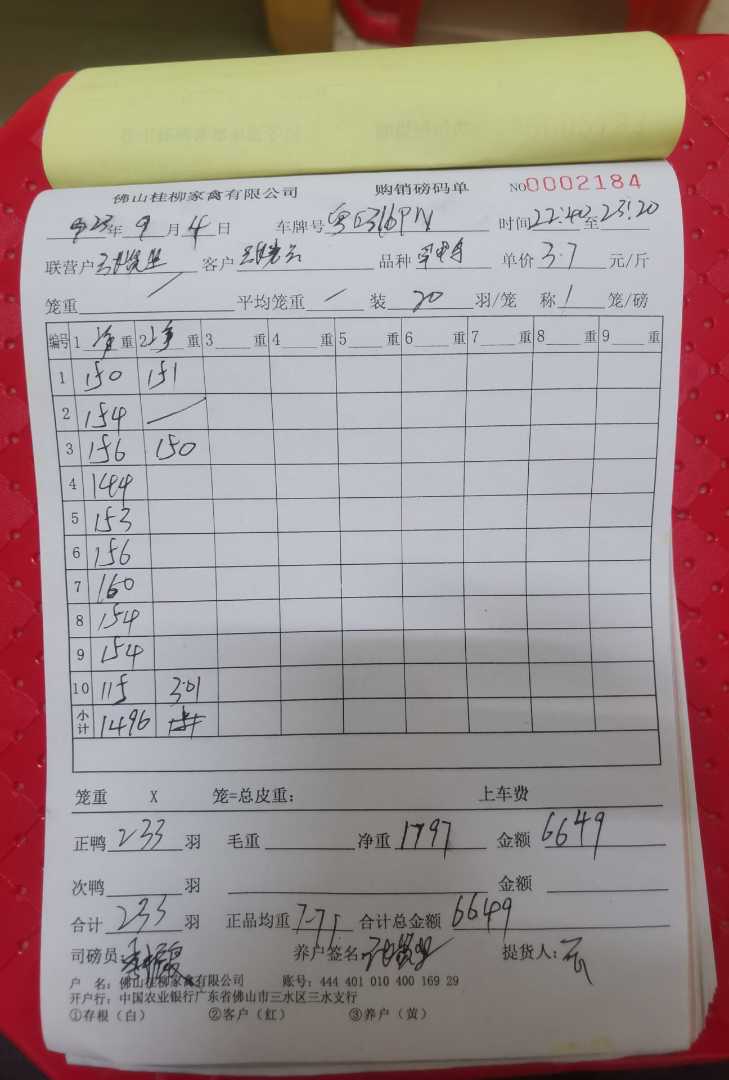 佛山桂柳家禽有限公司 购销磅码单 NO0002184
23年9月4日 车牌号 时间22:40至23:20
联营户 客户 品种 单价3.7元/斤
笼重/ 平均笼重/ 装20羽/笼 称1笼/磅
编号 1净重 2净重 3重 4重 5重 6重 7重 8重 9重
1 150 151
2 154 /
3 156 150
4 144
5 153
6 156
7 160
8 154
9 154
10 115 301
小计 1496
笼重 X 笼=总皮重: 上车费
正鸭233羽 毛重 净重1797 金额6649
次鸭 羽 金额
合计233羽 正品均重7.71 合计总金额6649
司磅员: 养户签名 提货人:云
户 名: 佛山桂柳家禽有限公司 账号: 444 401 010 400 169 29
开户行: 中国农业银行广东省佛山市三水区三水支行
①存根(白) ②客户(红) ③养户(黄)